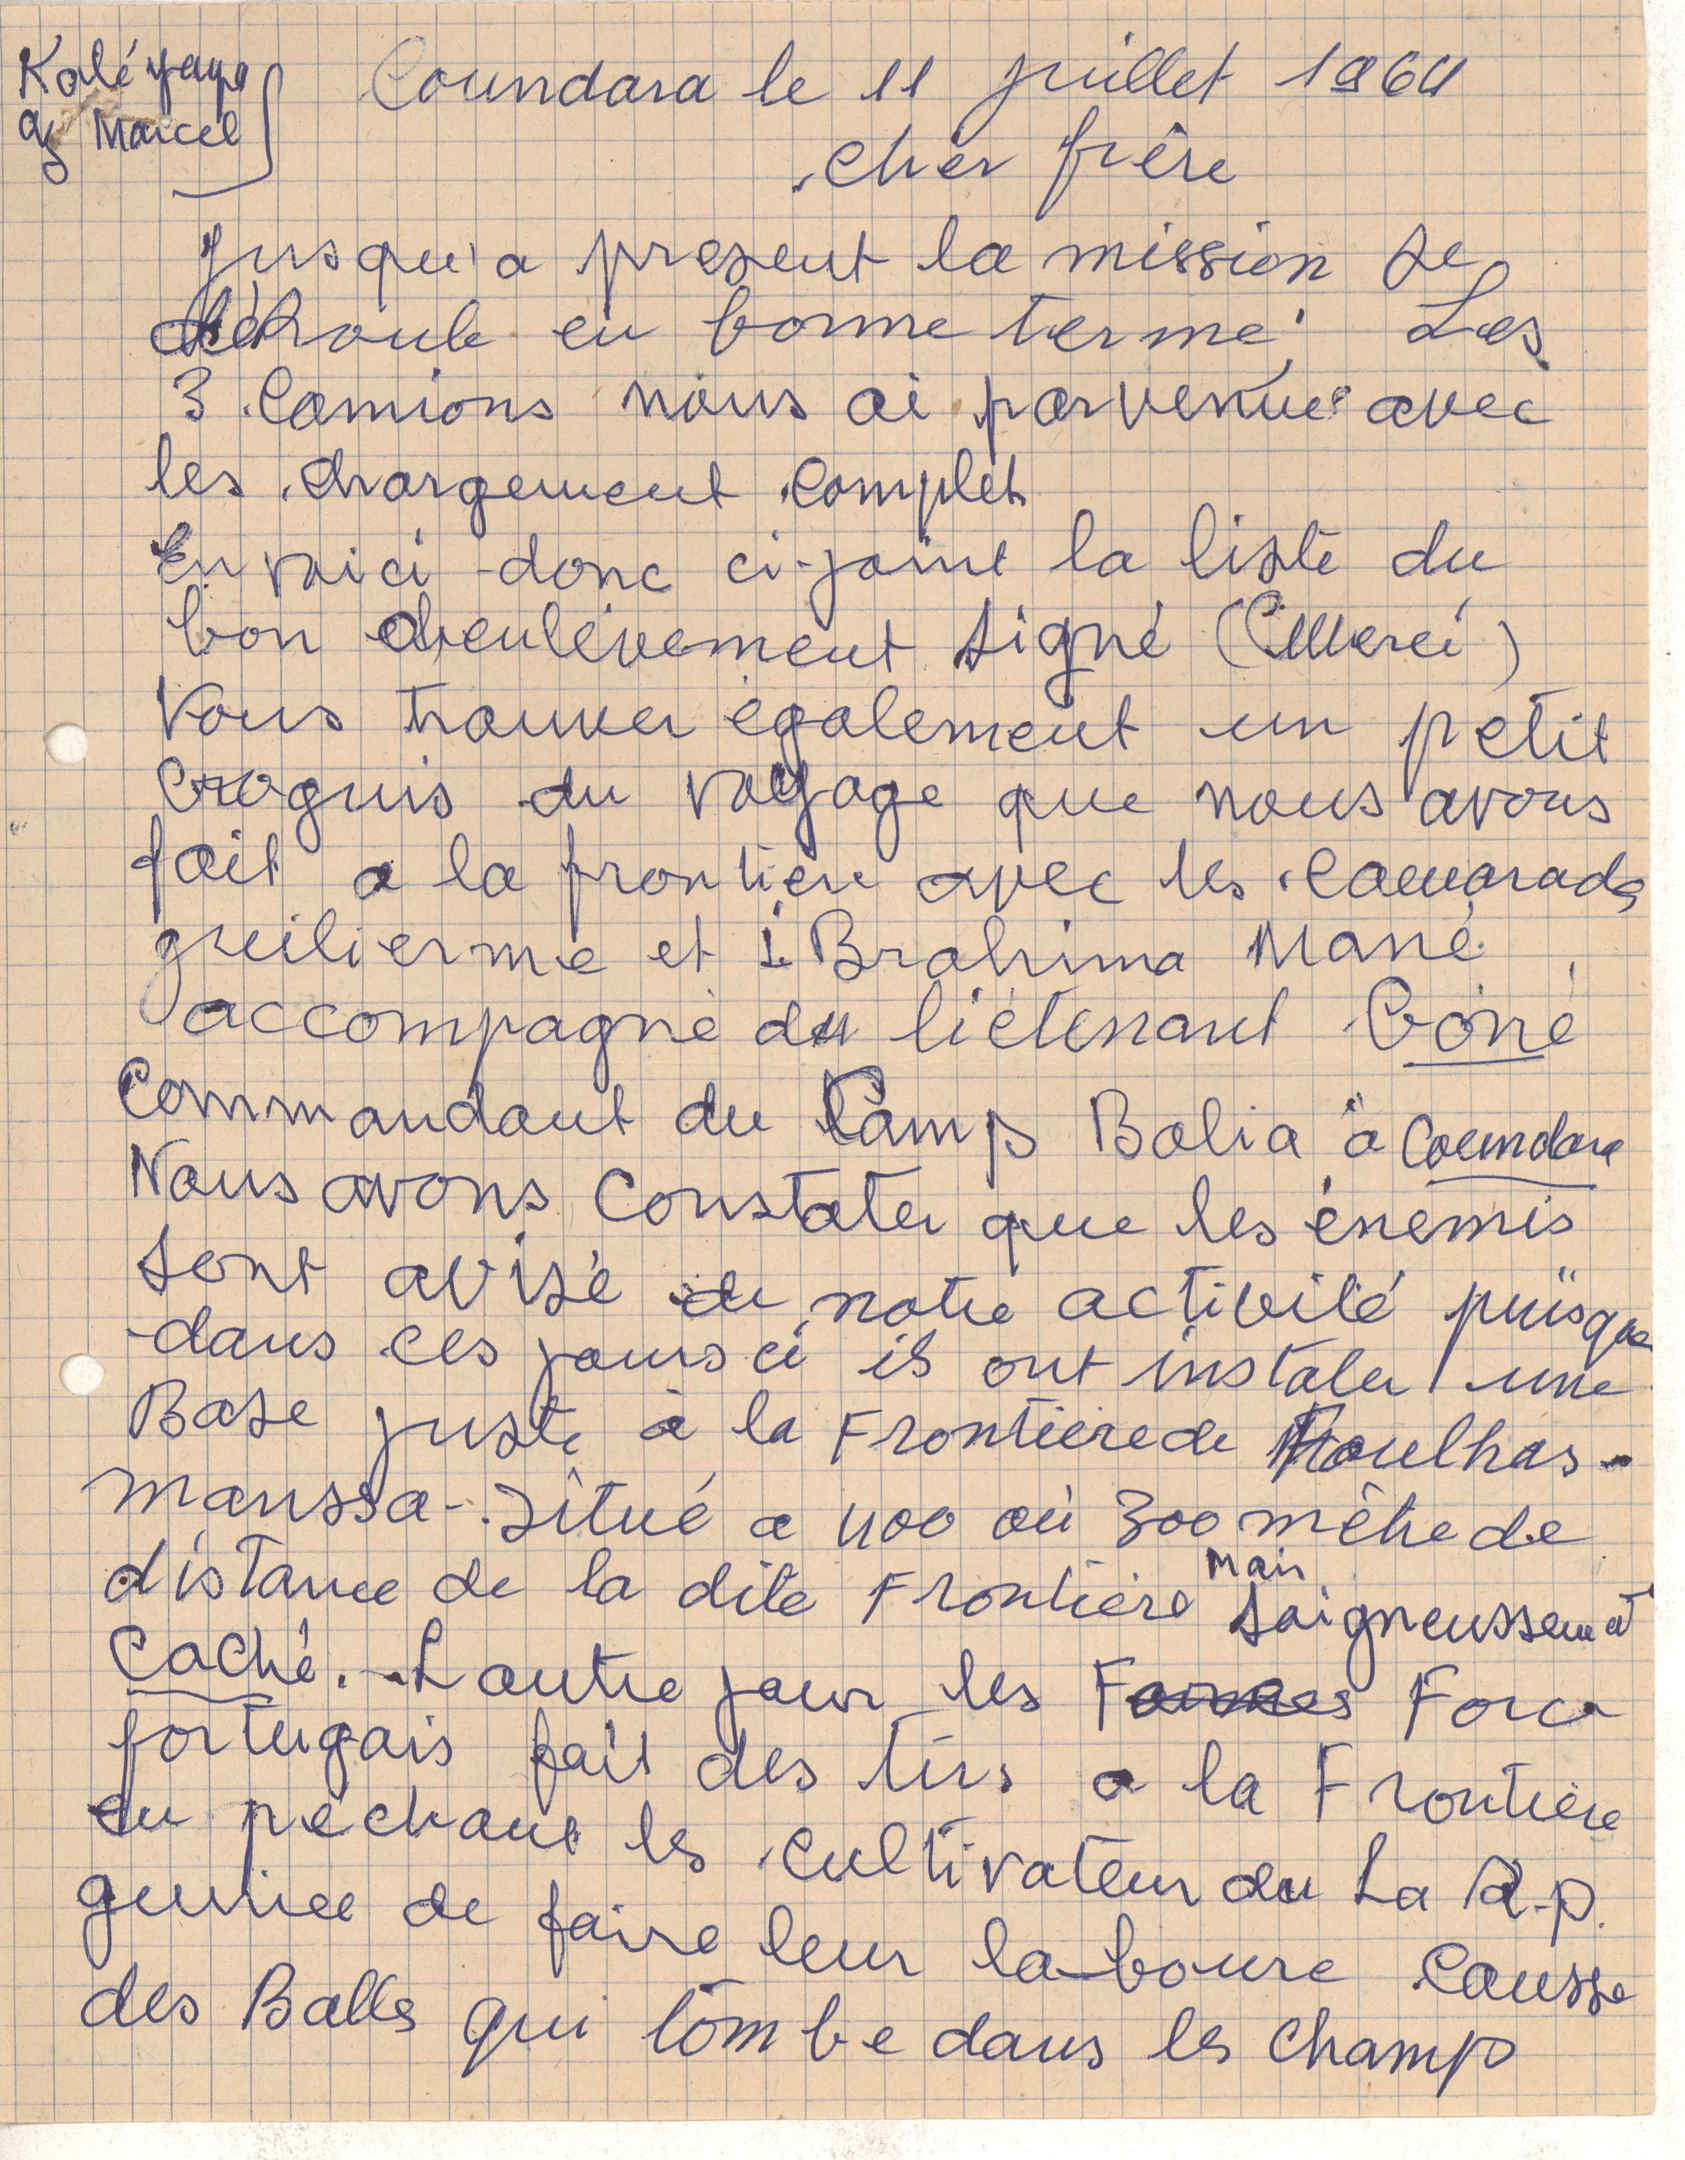 Kolé yaya
Marcel
Coundara le 11 juillet 1964
cher frère
Jusqu'a present la mission se
déroule en bonne terme. Les
3 Camions nous ai parvenue avec
les chargement complet
En voici donc ci-joint la liste du
bon d'enlévement signé (Merci)
Vous trouver également un petit
croguis du voyage que nous avons
fait a la frontiere avec les camarads
guilierme et iBrahima Mané
accompagné du liétenant Goné
Commandant du Camp Balia à Coundara
Nous avons Constater que les énemis
sont avisé de notre activité puisque
dans ces jours ci ils ont instaler une
Base juste à la Frontière de Foulhas-
manssa-. Situé a 400 où 300 mètre de
distance de la dite Frontière Mais soigneussement
caché. L'autre jour les Forces Force
portugais fait des tirs a la Frontière
en pechant les cultivateur du La R.p.
guinee de faire leur laboure causse
des Balles qui tombe dans les champs